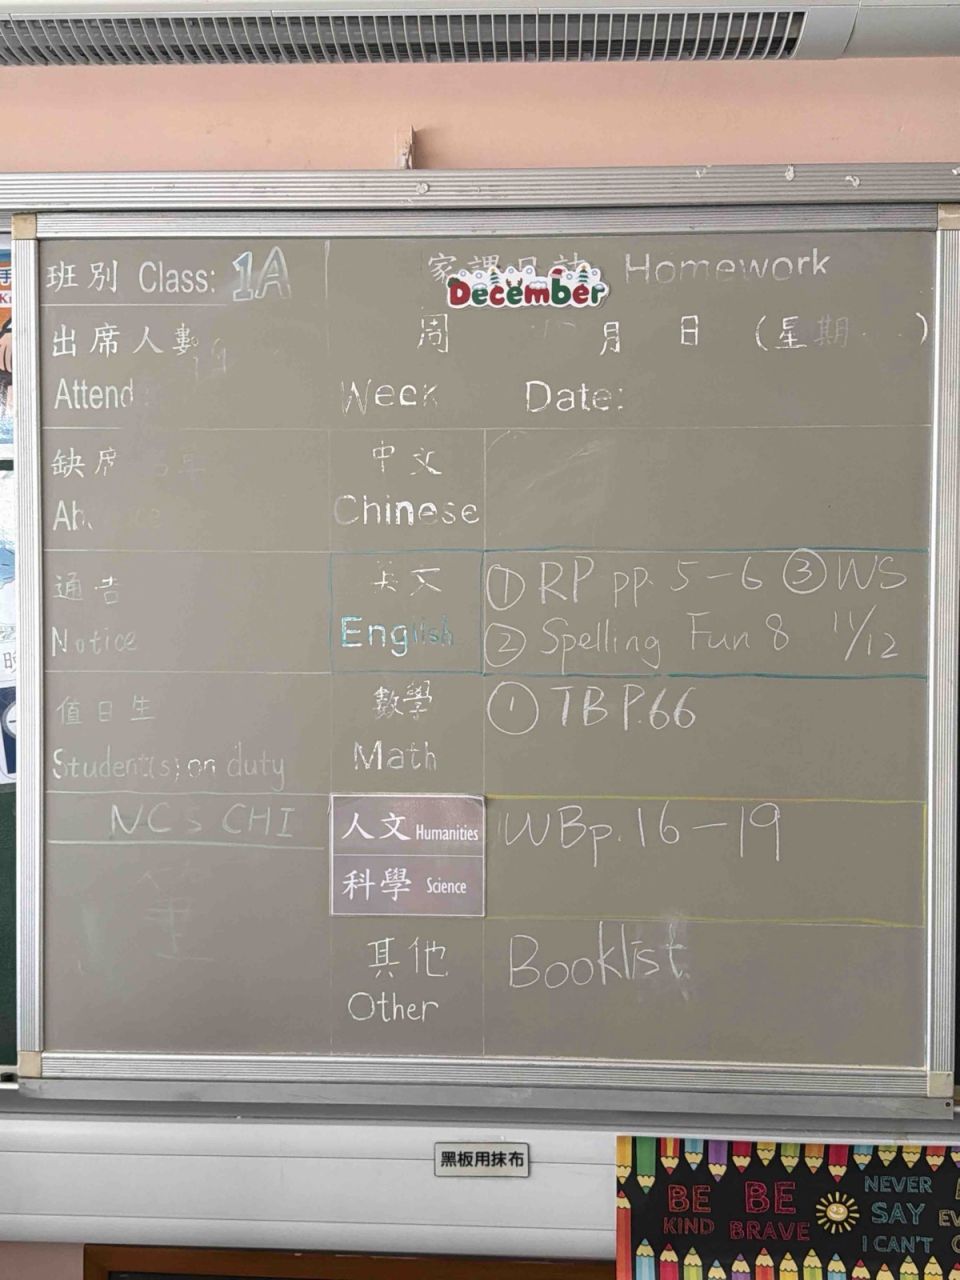 班別 Class: 1A
家課日誌 Homework
December
出席人數
Attend
周 月 日 (星期 )
Week Date:
缺席
中文
Chinese
通告
Notice
英文
English
① RP pp. 5-6 ③ WS
② Spelling Fun 8 11/12
值日生
Student(s) on duty
數學
Math
① TB P.66
NCS CHI
人文 Humanities
科學 Science
WB p. 16-19
其他
Other
Booklist
黑板用抹布
BE KIND
BE BRAVE
NEVER SAY I CAN'T